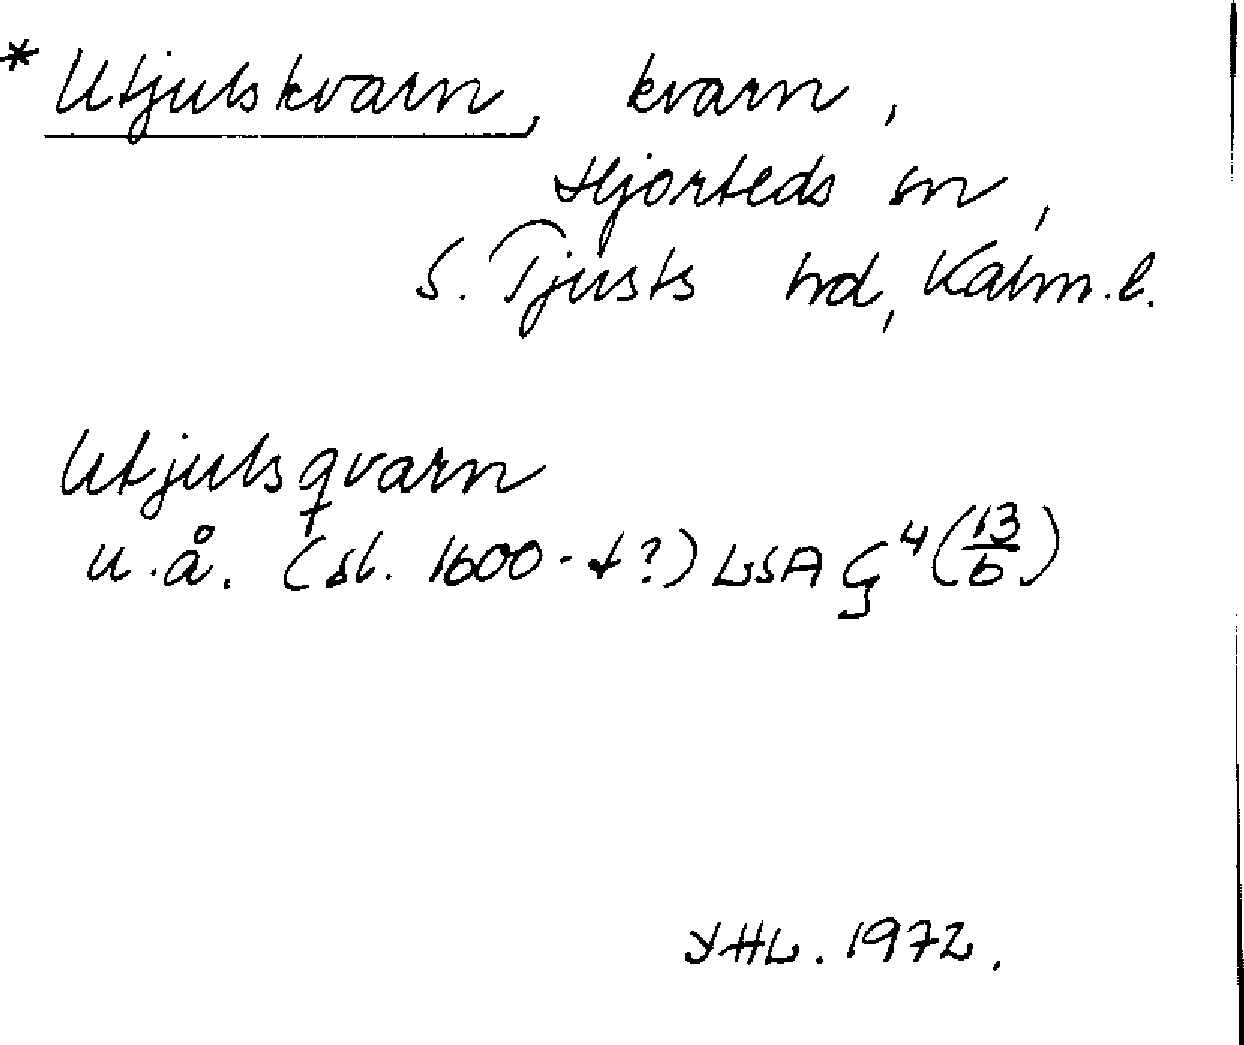 * Utjulskvarn, kvarn,
Hjorteds sn,
S. Tjusts hd, Kalm. l.
Utjulsqvarn
u.å. (sl. 1600-t?) LSA G⁴ (13/6)
YHL. 1972.